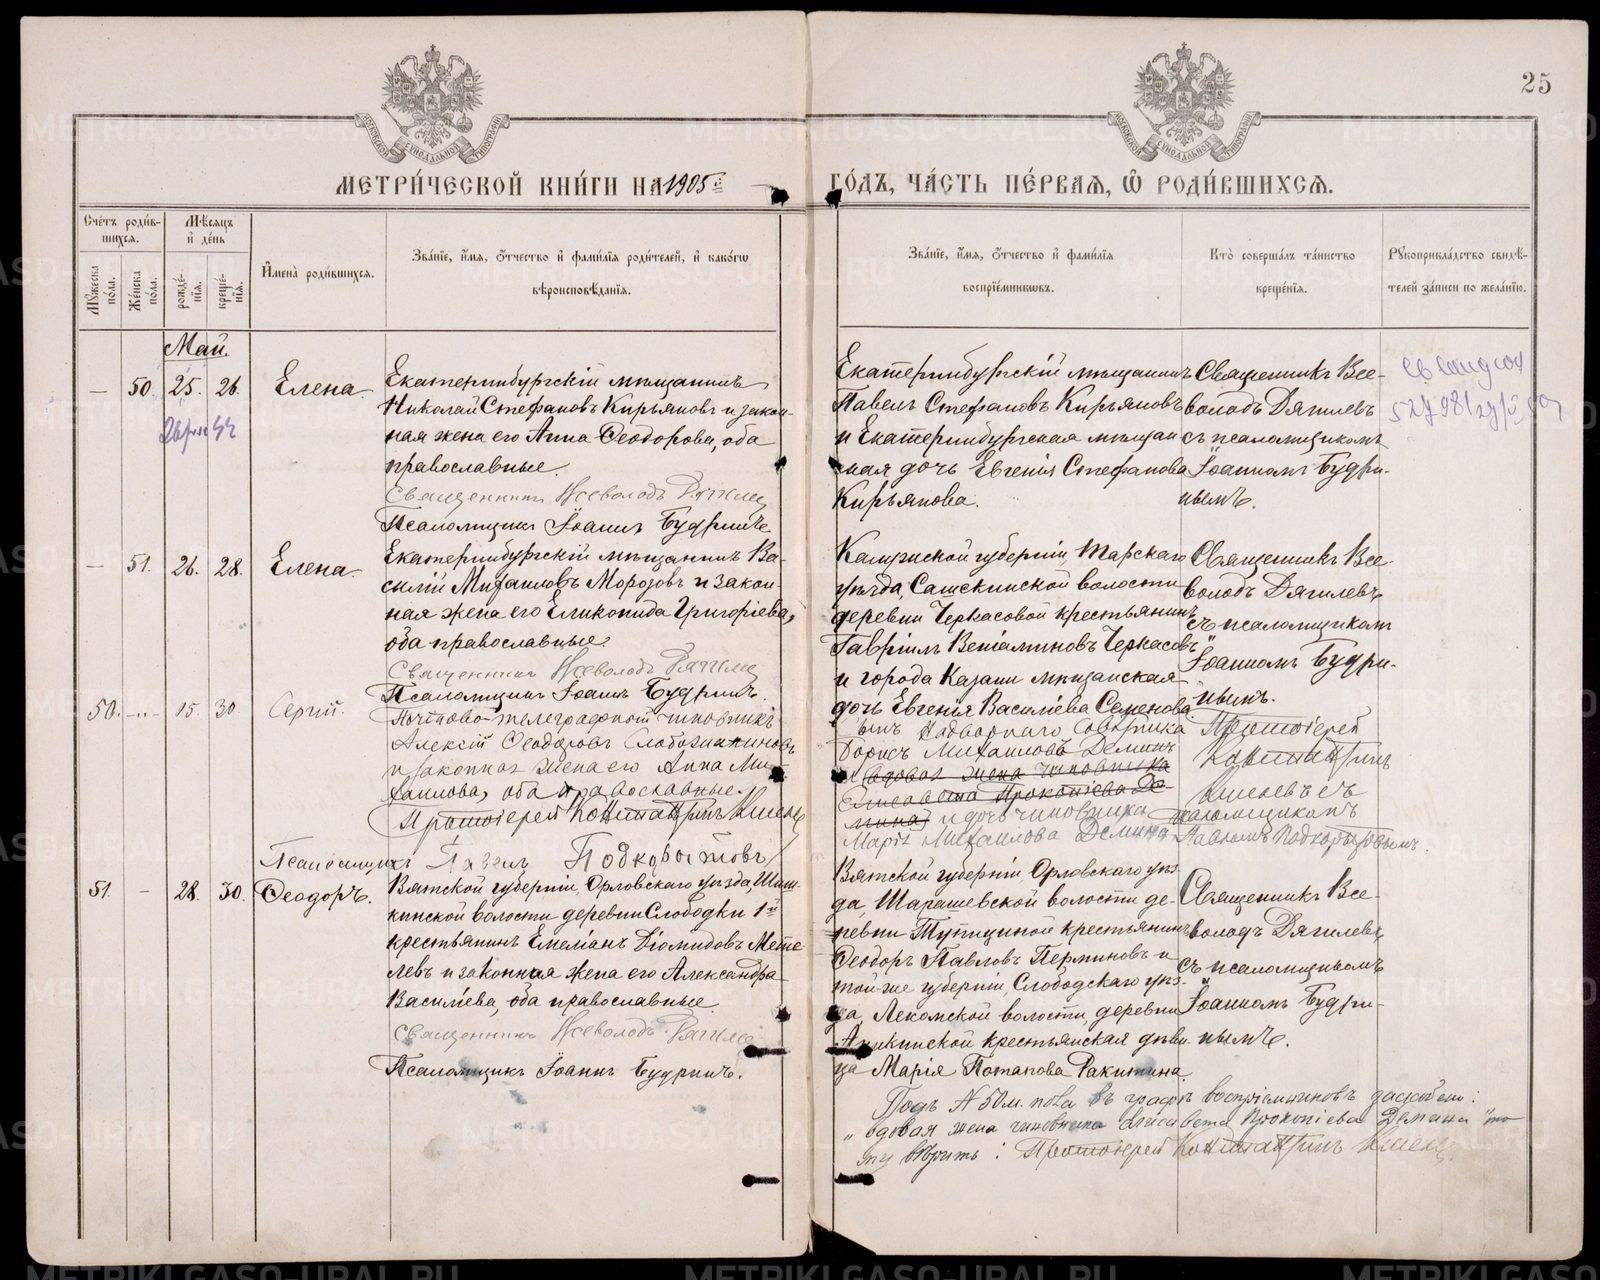 25
МЕТРИ́ЧЕСКОЙ КНИ́ГИ НА 1905й ГО́ДЪ, ЧА́СТЬ ПЕ́РВАЯ, Ѽ РОДИ́ВШИХСЯ.
Сче́тъ роди́в-
шихся.
Мѣ́сяцъ
и҆ де́нь
Мꙋ́жеска по́ла.
Же́нска по́ла.
рожде́-
нїя.
креще́-
нїя.
И҆мена̀ роди́вшихся.
Зва́нїе, и҆́мя, ѻ҆́тчество и҆ фами́лїя роди́телей, и҆ како́гѡ
вѣроисповѣ́данїя.
Зва́нїе, и҆́мя, ѻ҆́тчество и҆ фами́лїя
воспрїе́мникѡвъ.
Кто̀ соверша́лъ та́инство
креще́нїя.
Рꙋкоприкла́дство свидѣ́-
телей за́писи по жела́нїю.
Май.
— 50. 25. 26. Елена
Екатеринбургскій мѣщанинъ
Николай Стефановъ Кирьяновъ и закон-
ная жена его Анна Ѳеодорова, оба
православные.
Священникъ Всеволодъ Дягилев
Псаломщикъ Іоаннъ Будринъ
Екатеринбургскій мѣщанинъ
Павелъ Стефановъ Кирьяновъ
и Екатеринбургская мѣщан
ская дочь Евгенія Стефанова
Кирьянова.
Священникъ Все-
володъ Дягилевъ
съ псаломщикомъ
Іоанномъ Будри-
нымъ.
— 51. 26. 28. Елена.
Екатеринбургскій мѣщанинъ Ва-
силій Михаиловъ Морозовъ и закон-
ная жена его Еликонида Григоріева,
оба православные.
Священникъ Всеволодъ Дягилев
Псаломщикъ Іоаннъ Будринъ.
уѣзда, волости
деревни Черкасовой крестьянинъ
Гавріилъ Веніаминовъ Черкасовъ
и города Казани мѣщанская
дочь Евгенія Василіева Семенова
Священникъ Все-
володъ Дягилевъ
съ псаломщикомъ
Іоанномъ Будри-
нымъ.
50. -"- 15. 30. Сергій.
Почтово-телеграфный чиновникъ
Алексій Ѳеодоровъ
и законная жена его Анна Ми-
хаилова, оба православные.
Протоіерей Константинъ
Псаломщикъ Павелъ Подкорытовъ
Сынъ Надворнаго Советника
Борисъ Михаиловъ Деминъ
и вдовая жена чиновника
Елисавета Прокопіева Де-
мина и дочь чиновника
Марія Михаилова Демина
Протоіерей
Константинъ
съ
псаломщикомъ
Павломъ Подкорытовымъ.
51. - 28. 30. Ѳеодоръ.
Вятской губерніи, Орловскаго уѣзда, Шиш-
кинской волости деревни Слободки 1й
крестьянинъ Емеліанъ Діомидовъ Мете
левъ и законная жена его Александра
Василіева, оба православные
Священникъ Всеволодъ Дягилев
Псаломщикъ Іоаннъ Будринъ.
Вятской губерніи Орловскаго уѣз-
да, волости де-
ревни крестьянинъ
Ѳеодоръ Павловъ Перминовъ и
той-же губерніи, Слободскаго уѣз-
да, Лекомской волости, деревни
Аникинской крестьянская дѣви
ца Марія Потапова Ракитина.
Священникъ Все-
володъ Дягилевъ
съ псаломщикомъ
Іоанномъ Будри-
нымъ.
Подъ № 50 м. пола въ графѣ воспріемниковъ зачеркнуто:
„вдовая жена чиновника Елисавета Прокопіева Демина"
вѣрить: Протоіерей Константинъ